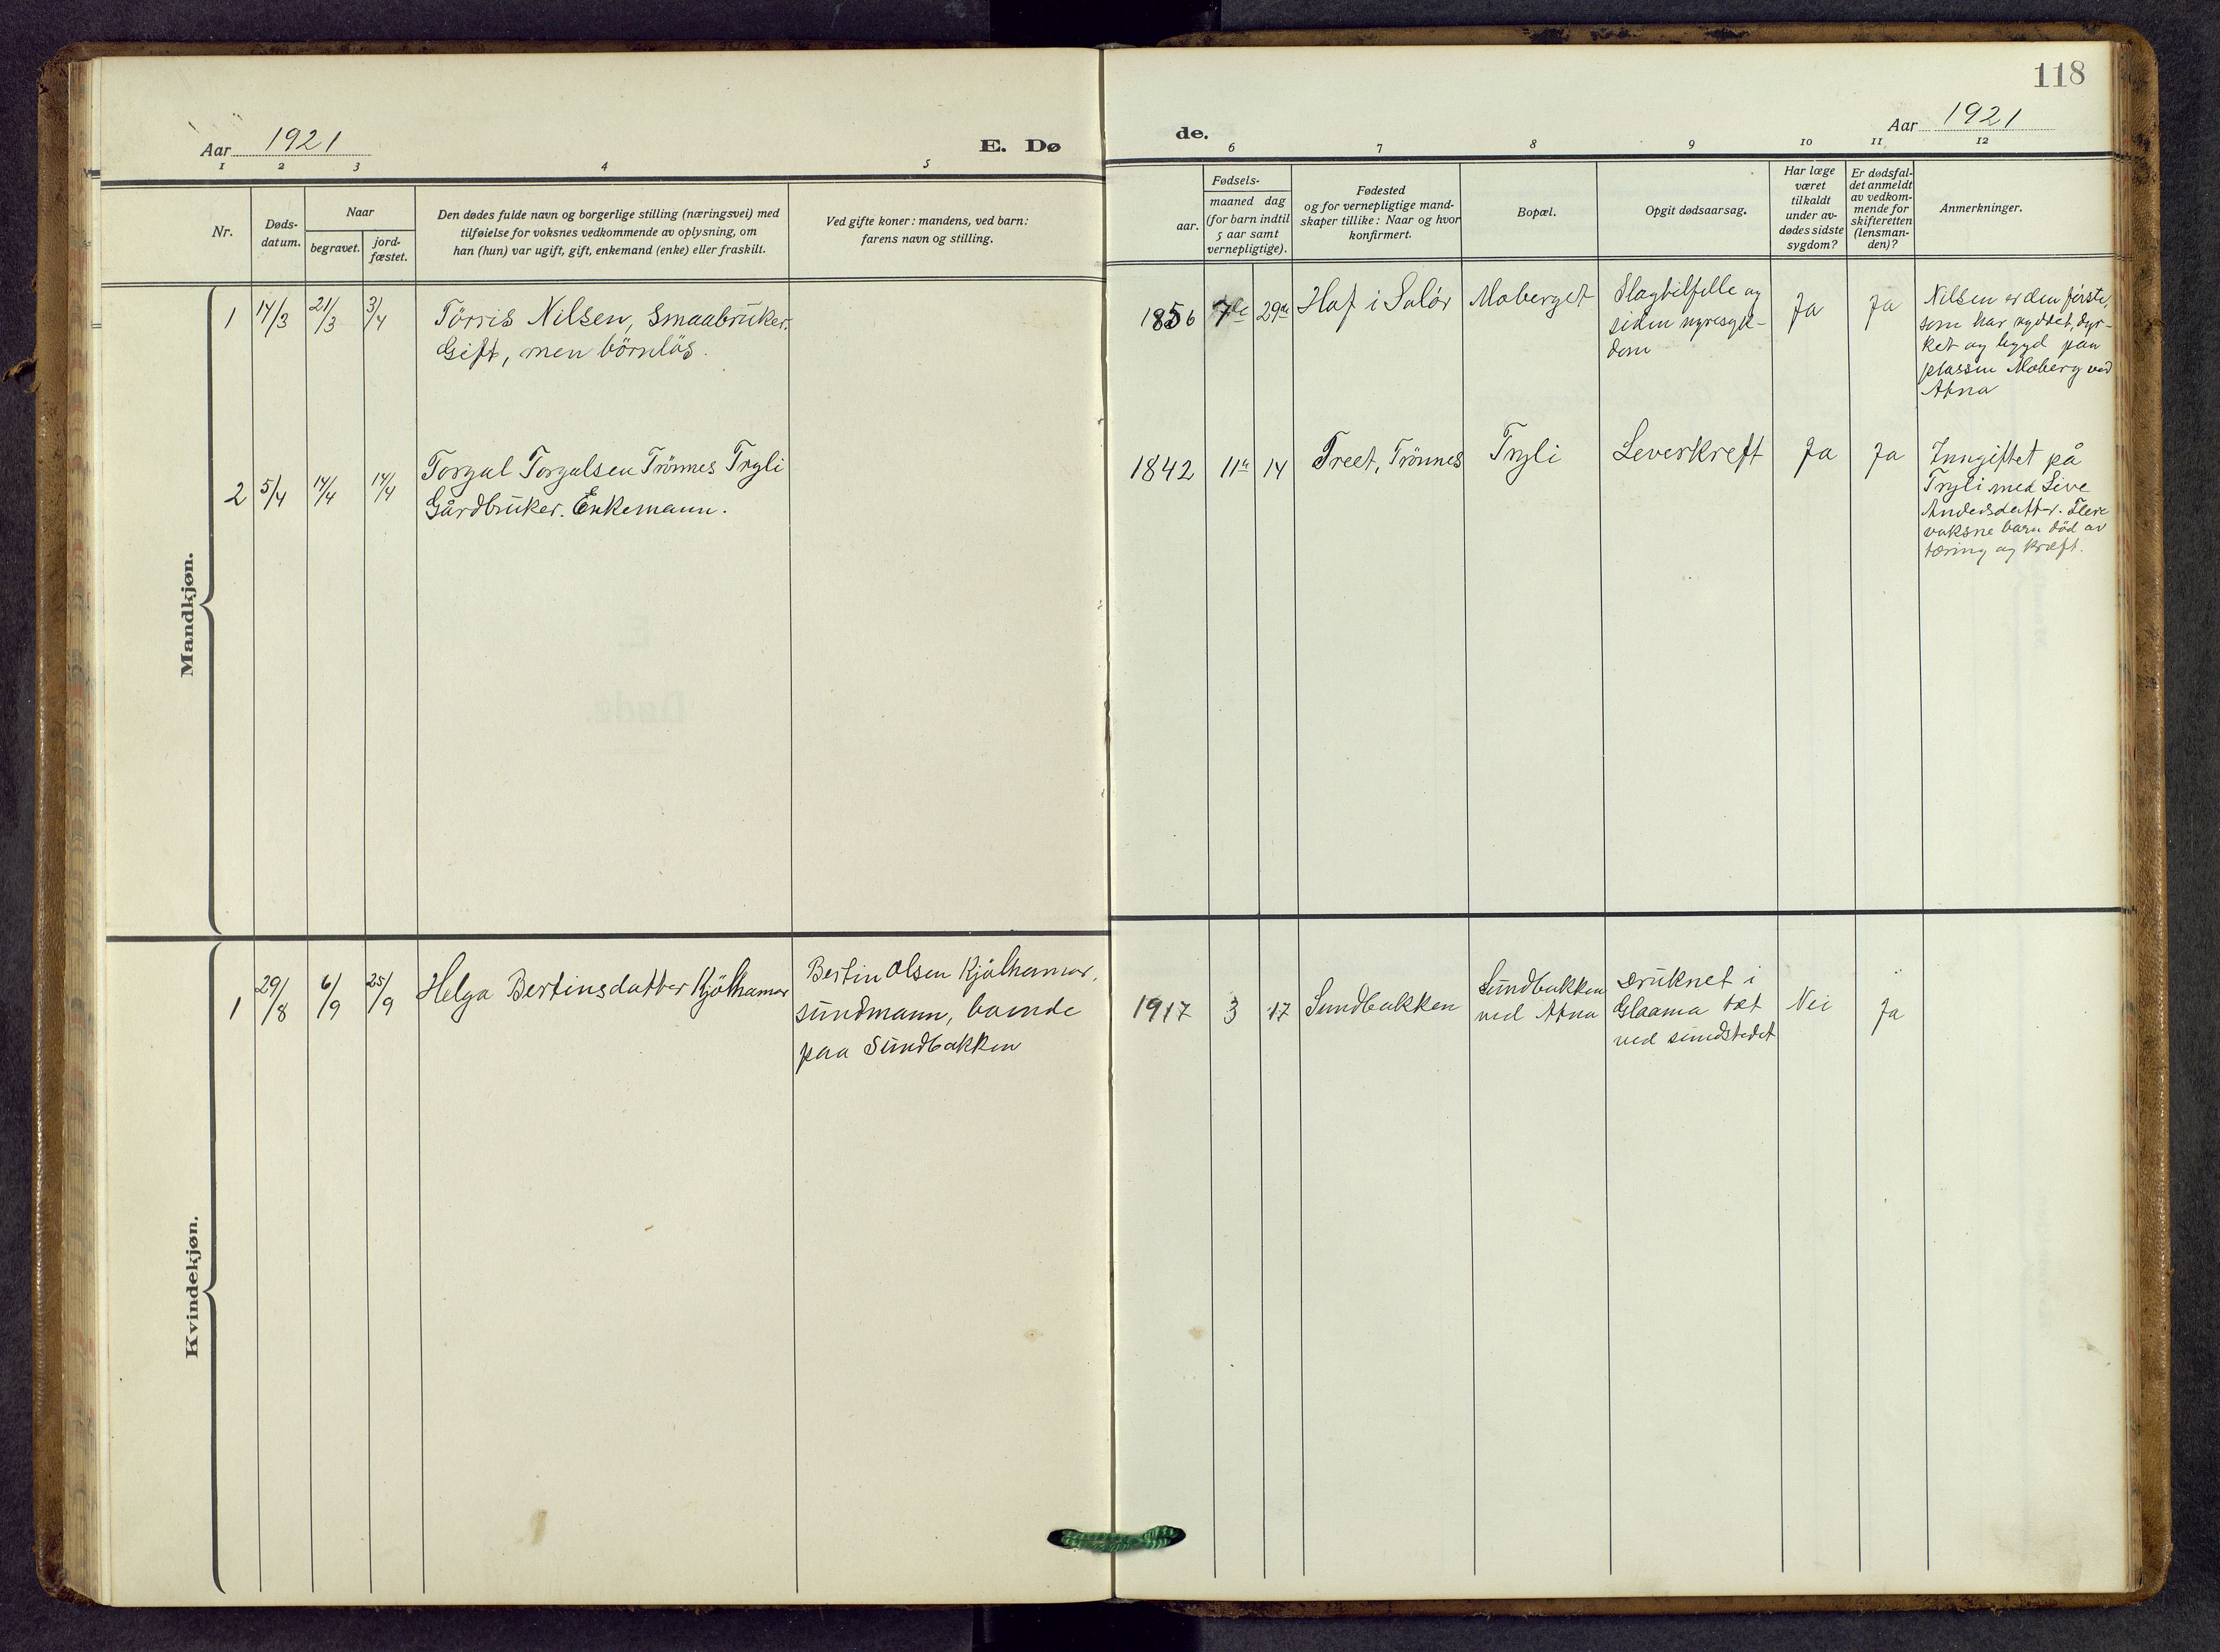 118
Aar 1921
E. Dø
de.
Aar 1921
1 2 3 4 5
6 7 8 9 10 11 12
Nr.
Døds-
datum.
Naar
begravet.
jord-
fæstet.
Den dødes fulde navn og borgerlige stilling (næringsvei) med
tilføielse for voksnes vedkommende av oplysning, om
han (hun) var ugift, gift, enkemand (enke) eller fraskilt.
Ved gifte koner: mandens, ved barn:
farens navn og stilling.
Fødsels-
aar.
maaned dag
(for barn indtil
5 aar samt
vernepligtige).
Fødested
og for vernepligtige mand-
skaper tillike: Naar og hvor
konfirmert.
Bopæl.
Opgit dødsaarsag.
Har læge
været
tilkaldt
under av-
dødes sidste
sygdom?
Er dødsfal-
det anmeldt
av vedkom-
mende for
skifteretten
(lensman-
den)?
Anmerkninger.
Mandkjøn.
1
14/3
21/3
3/4
Törris Nilsen, Smaabruker.
Gift, men börnlös.
1856
7de
29de
Hof i Solör
Moberget
Slagtilfelle og
siden nyresyk-
dom
Ja
Ja
Nilsen er den förste,
som har ryddet, dyr-
ket og bygd paa
plassen Moberg ved
Atna
2
5/4
14/4
14/4
Torgal Torgalsen Trönnes Tryli
Gårdbruker. Enkemann.
1842
11te
14
Treet, Trönnes
Tryli
Leverkreft
Ja
Ja
Inngiftet på
Tryli med Live
Andersdatter. Flere
voksne barn död av
tæring og kræft.
Kvindekjøn.
1
29/8
6/9
25/9
Helga Bertinsdatter Kjölhamar
Bertin Olsen Kjölhamar,
sundmann, boende
paa Sundbakken
1917
3
17
Sundbakken
Sundbakken
ved Atna
Druknet i
Glaama tæt
ved sundstedet
Nei
Ja